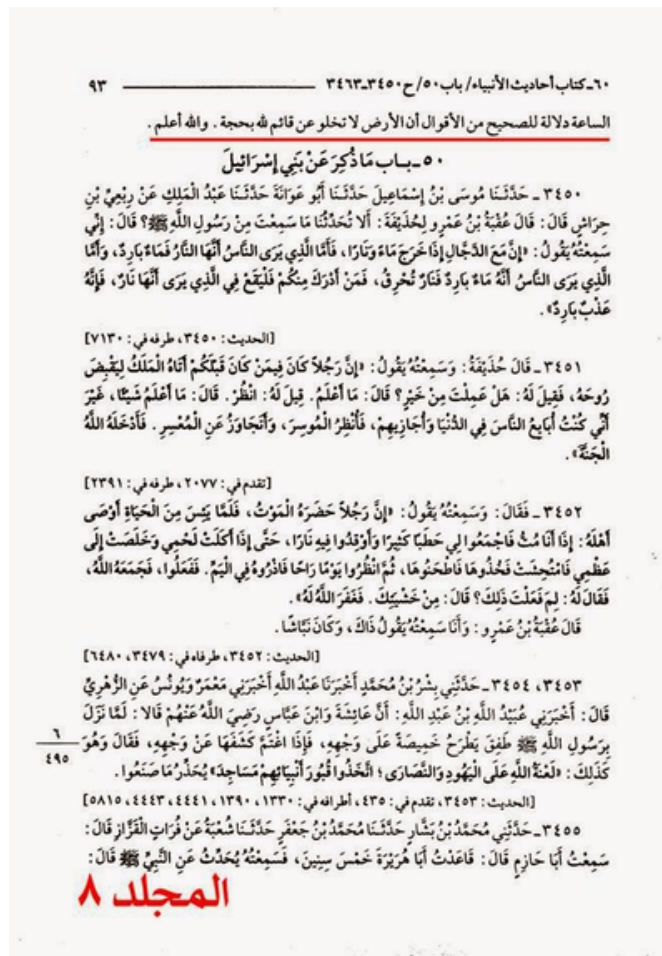 ٦٠ـ كتاب أحاديث الأنبياء/ باب ٥٠/ ح ٣٤٥٠ـ٣٤٦٣ ٩٣
الساعة دلالة للصحيح من الأقوال أن الأرض لا تخلو عن قائم لله بحجة. والله أعلم.
٥٠ـ بـاب مَا ذُكِرَ عَنْ بَنِي إِسْرَائِيلَ
٣٤٥٠ ـ حَدَّثَنَا مُوسَى بْنُ إِسْمَاعِيلَ حَدَّثَنَا أَبُو عَوَانَةَ حَدَّثَنَا عَبْدُ الْمَلِكِ عَنْ رِبْعِيِّ بْنِ
حِرَاشٍ قَالَ: قَالَ عُقْبَةُ بْنُ عَمْرٍو لِحُذَيْفَةَ: أَلَا تُحَدِّثُنَا مَا سَمِعْتَ مِنْ رَسُولِ اللَّهِ ﷺ؟ قَالَ: إِنِّي
سَمِعْتُهُ يَقُولُ: «إِنَّ مَعَ الدَّجَّالِ إِذَا خَرَجَ مَاءً وَنَارًا، فَأَمَّا الَّذِي يَرَى النَّاسُ أَنَّهَا النَّارُ فَمَاءٌ بَارِدٌ، وَأَمَّا
الَّذِي يَرَى النَّاسُ أَنَّهُ مَاءٌ بَارِدٌ فَنَارٌ تُحْرِقُ، فَمَنْ أَدْرَكَ مِنْكُمْ فَلْيَقَعْ فِي الَّذِي يَرَى أَنَّهَا نَارٌ، فَإِنَّهُ
عَذْبٌ بَارِدٌ».
[الحديث: ٣٤٥٠، طرفه في: ٧١٣٠]
٣٤٥١ ـ قَالَ حُذَيْفَةُ: وَسَمِعْتُهُ يَقُولُ: «إِنَّ رَجُلاً كَانَ فِيمَنْ كَانَ قَبْلَكُمْ أَتَاهُ الْمَلَكُ لِيَقْبِضَ
رُوحَهُ، فَقِيلَ لَهُ: هَلْ عَمِلْتَ مِنْ خَيْرٍ؟ قَالَ: مَا أَعْلَمُ. قِيلَ لَهُ: انْظُرْ. قَالَ: مَا أَعْلَمُ شَيْئًا، غَيْرَ
أَنِّي كُنْتُ أُبَايِعُ النَّاسَ فِي الدُّنْيَا وَأُجَازِيهِمْ، فَأُنْظِرُ الْمُوسِرَ، وَأَتَجَاوَزُ عَنِ الْمُعْسِرِ. فَأَدْخَلَهُ اللَّهُ
الْجَنَّةَ».
[تقدم في: ٢٠٧٧، طرفه في: ٢٣٩١]
٣٤٥٢ ـ فَقَالَ: وَسَمِعْتُهُ يَقُولُ: «إِنَّ رَجُلاً حَضَرَهُ الْمَوْتُ، فَلَمَّا يَئِسَ مِنَ الْحَيَاةِ أَوْصَى
أَهْلَهُ: إِذَا أَنَا مُتُّ فَاجْمَعُوا لِي حَطَبًا كَثِيرًا وَأَوْقِدُوا فِيهِ نَارًا، حَتَّى إِذَا أَكَلَتْ لَحْمِي وَخَلَصَتْ إِلَى
عَظْمِي فَامْتُحِشَتْ فَخُذُوهَا فَاطْحَنُوهَا، ثُمَّ انْظُرُوا يَوْمًا رَاحًا فَاذْرُوهُ فِي الْيَمِّ. فَفَعَلُوا، فَجَمَعَهُ اللَّهُ،
فَقَالَ لَهُ: لِمَ فَعَلْتَ ذَلِكَ؟ قَالَ: مِنْ خَشْيَتِكَ. فَغَفَرَ اللَّهُ لَهُ».
قَالَ عُقْبَةُ بْنُ عَمْرٍو: وَأَنَا سَمِعْتُهُ يَقُولُ ذَاكَ، وَكَانَ نَبَّاشًا.
[الحديث: ٣٤٥٢، طرفاه في: ٣٤٧٩، ٦٤٨٠]
٣٤٥٣، ٣٤٥٤ ـ حَدَّثَنِي بِشْرُ بْنُ مُحَمَّدٍ أَخْبَرَنَا عَبْدُ اللَّهِ أَخْبَرَنِي مَعْمَرٌ وَيُونُسُ عَنِ الزُّهْرِيِّ
قَالَ: أَخْبَرَنِي عُبَيْدُ اللَّهِ بْنُ عَبْدِ اللَّهِ: أَنَّ عَائِشَةَ وَابْنَ عَبَّاسٍ رَضِيَ اللَّهُ عَنْهُمْ قَالا: لَمَّا نَزَلَ
بِرَسُولِ اللَّهِ ﷺ طَفِقَ يَطْرَحُ خَمِيصَةً عَلَى وَجْهِهِ، فَإِذَا اغْتَمَّ كَشَفَهَا عَنْ وَجْهِهِ، فَقَالَ وَهُوَ
٦
٤٩٥
كَذَلِكَ: «لَعْنَةُ اللَّهِ عَلَى الْيَهُودِ وَالنَّصَارَى؛ اتَّخَذُوا قُبُورَ أَنْبِيَائِهِمْ مَسَاجِدَ» يُحَذِّرُ مَا صَنَعُوا.
[الحديث: ٣٤٥٣، تقدم في: ٤٣٥، أطرافه في: ١٣٣٠، ١٣٩٠، ٤٤٤١، ٤٤٤٣، ٥٨١٥]
٣٤٥٥ ـ حَدَّثَنِي مُحَمَّدُ بْنُ بَشَّارٍ حَدَّثَنَا مُحَمَّدُ بْنُ جَعْفَرٍ حَدَّثَنَا شُعْبَةُ عَنْ فُرَاتٍ الْقَزَّازِ قَالَ:
سَمِعْتُ أَبَا حَازِمٍ قَالَ: قَاعَدْتُ أَبَا هُرَيْرَةَ خَمْسَ سِنِينَ، فَسَمِعْتُهُ يُحَدِّثُ عَنِ النَّبِيِّ ﷺ قَالَ:
المجلد ٨